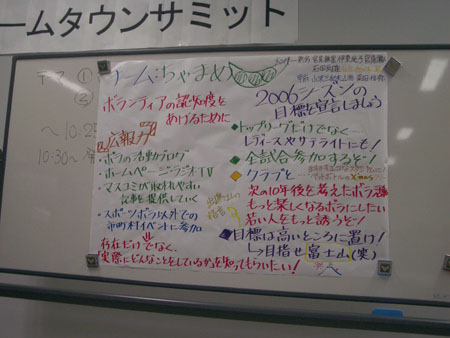 ームタウンサミット
テーマ ①
②
〜10:2
10:30〜 発
チーム:ちゃまめ
ボランティアの認知度を
あげるために
広報力
・ボラの活動ブログ
・ホームページ・ラジオTV
・マスコミが取りやすい
記事を提供していく
・スポーツボラ以外での
市町村イベントに参加
存在だけでなく、
「実際にどんなことをしているか」を知ってもらいたい!
2006シーズンの
目標を宣言しましょう
◆トップリーグだけでなく…
レディースやサテライトにも!
◆全試合参加するぞ!
◆クラブと…
次の10年後を考えたボラ運
もっと楽しくなるボラにしたい
若い人をもっと誘うぞ!
◆目標は高いところに置け!
↳目指せ富士山(笑)